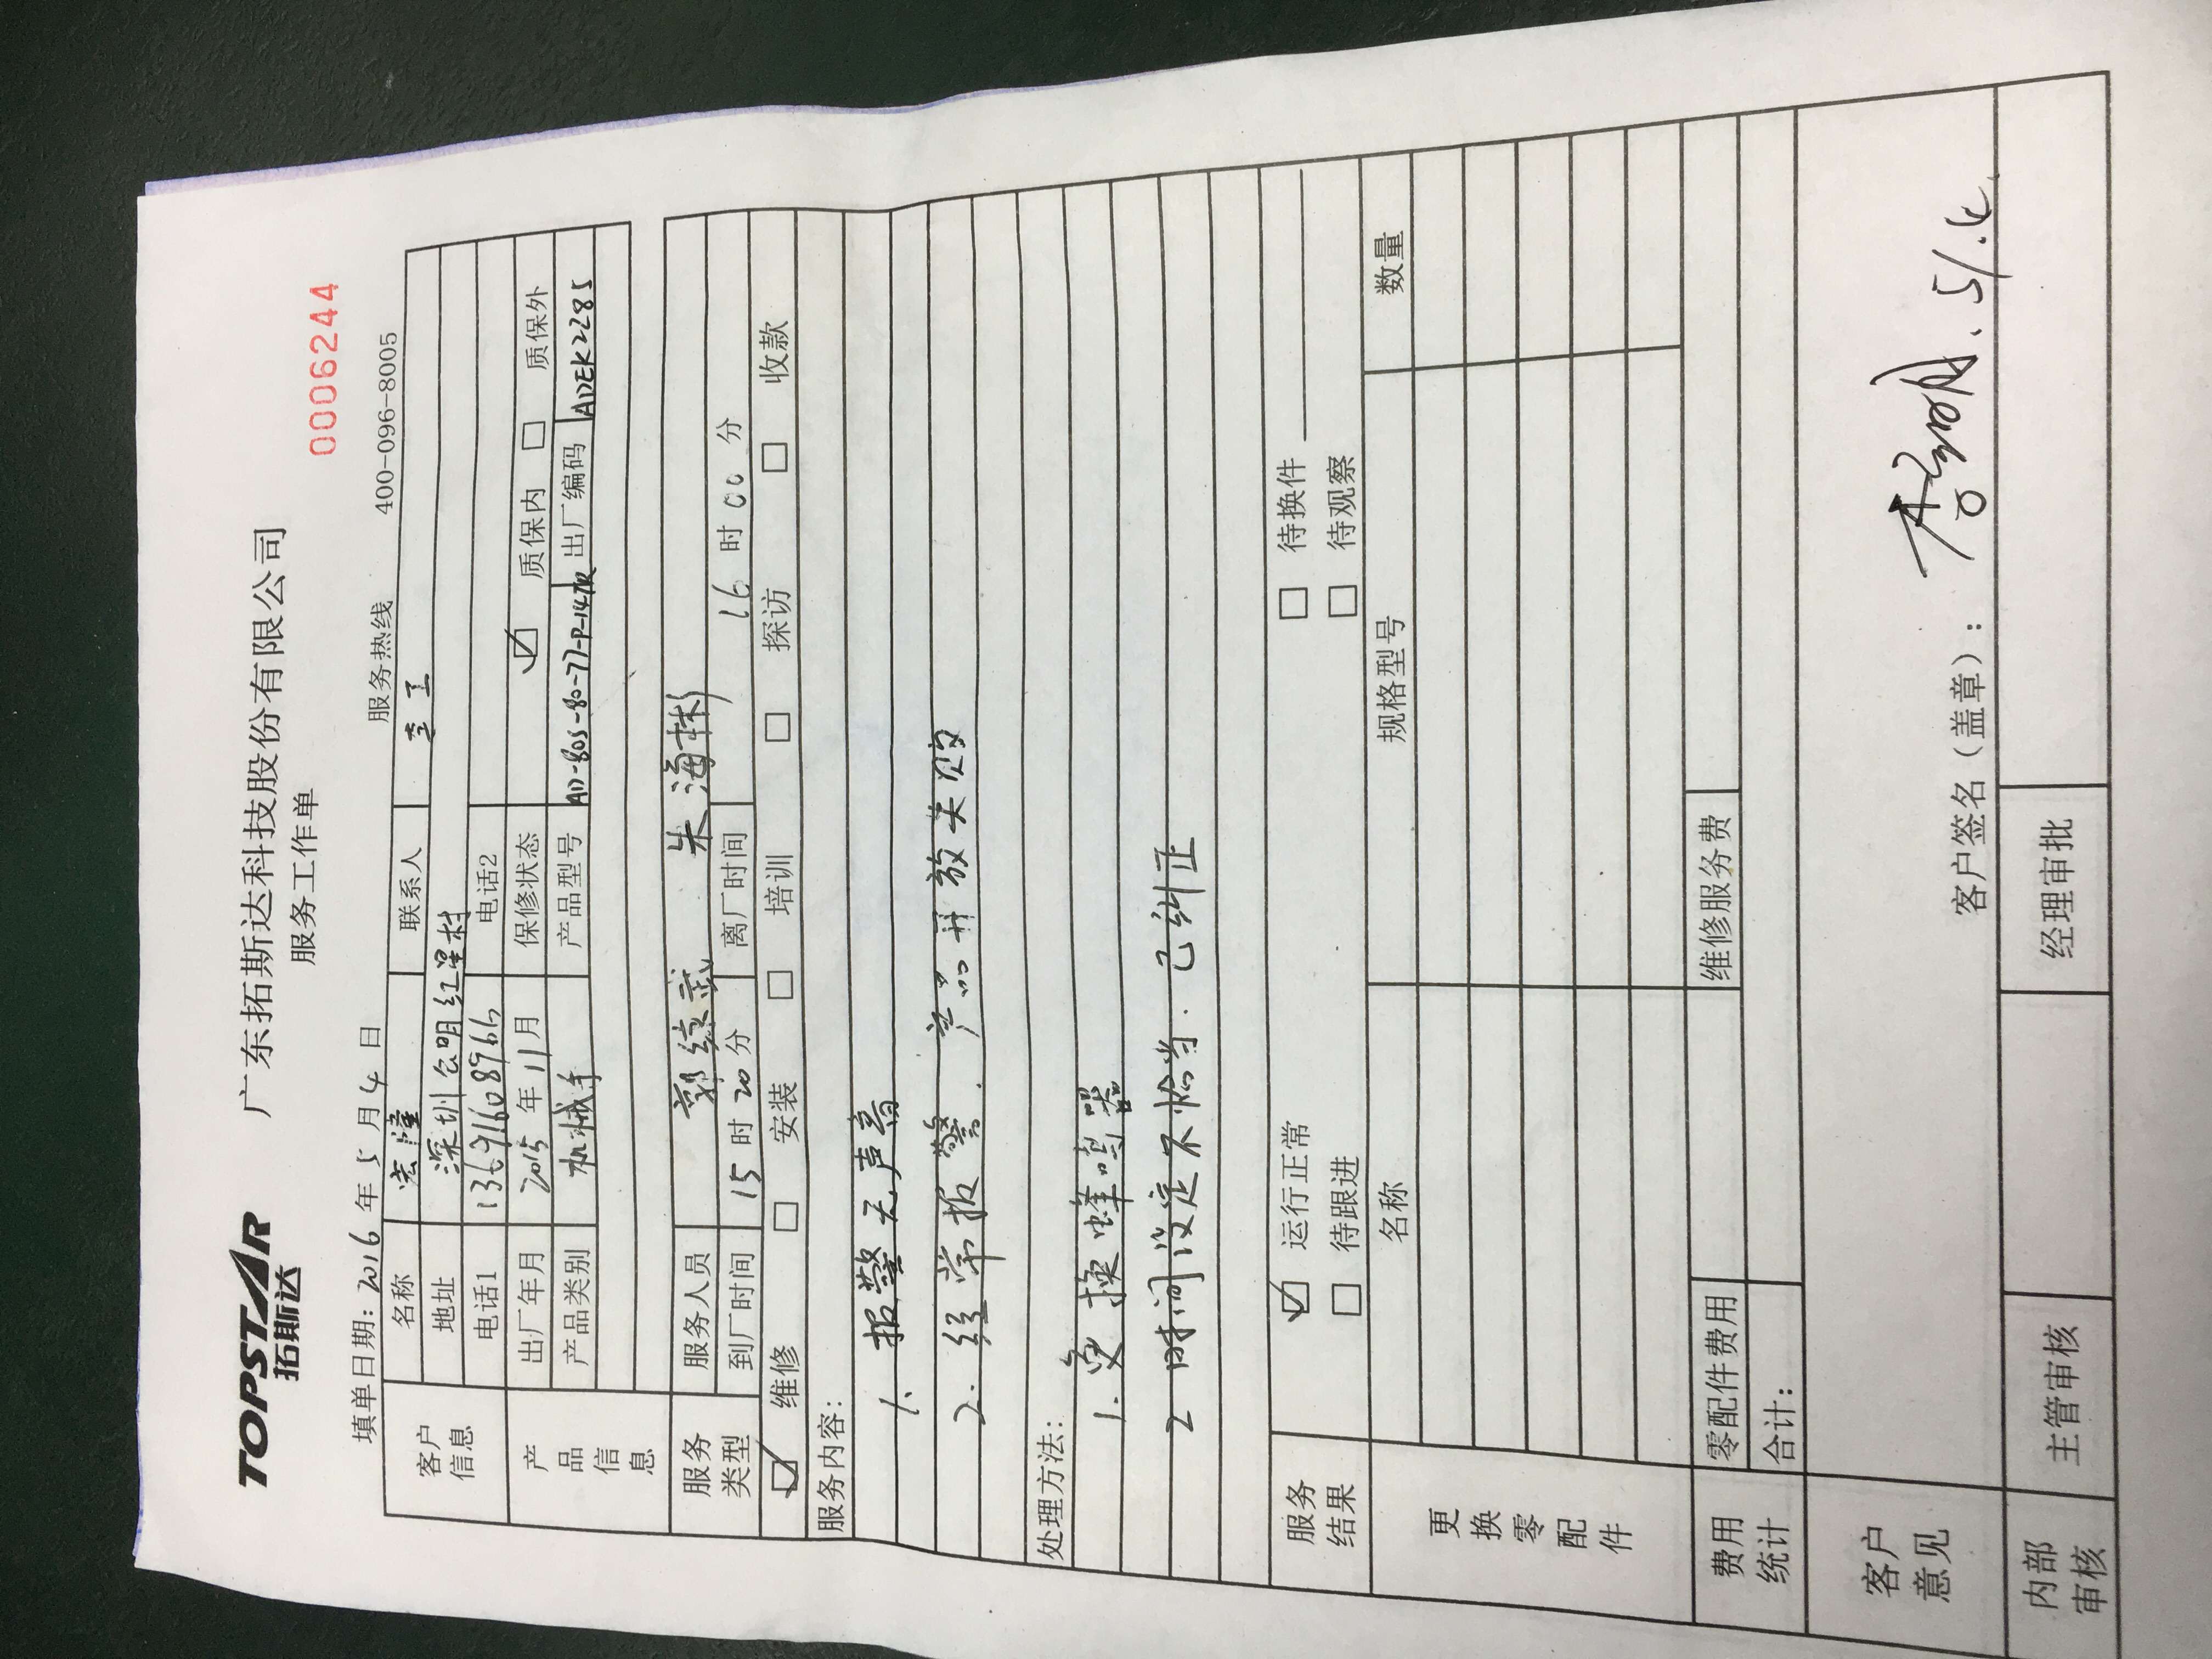 TOPSTAR
拓斯达
广东拓斯达科技股份有限公司
服务工作单
0006244
填单日期: 2016 年 5 月 4 日
服务热线 400-096-8005
客户信息
名称 宏隆 联系人 李工
地址 深圳公明红星村
电话1 电话2
产品信息
出厂年月 2015 年 11 月 保修状态 ☑ 质保内 □ 质保外
产品类别 机械手 产品型号 AD-80S-80-77-P-147R 出厂编码 ADEK2285
服务人员 朱海彬
服务类型
到厂时间 15 时 20 分 离厂时间 16 时 00 分
☑ 维修 □ 安装 □ 培训 □ 探访 □ 收款
服务内容:
1. 报警无声音
2. 经常报警. 产品开放失败
处理方法:
1. 更换蜂鸣器
2 时间设定不恰当. 已纠正
服务结果
☑ 运行正常 □ 待换件
□ 待跟进 □ 待观察
更换零配件
名称 规格型号 数量
费用统计
零配件费用 维修服务费
合计:
客户意见
客户签名（盖章）:
内部审核
主管审核 经理审批